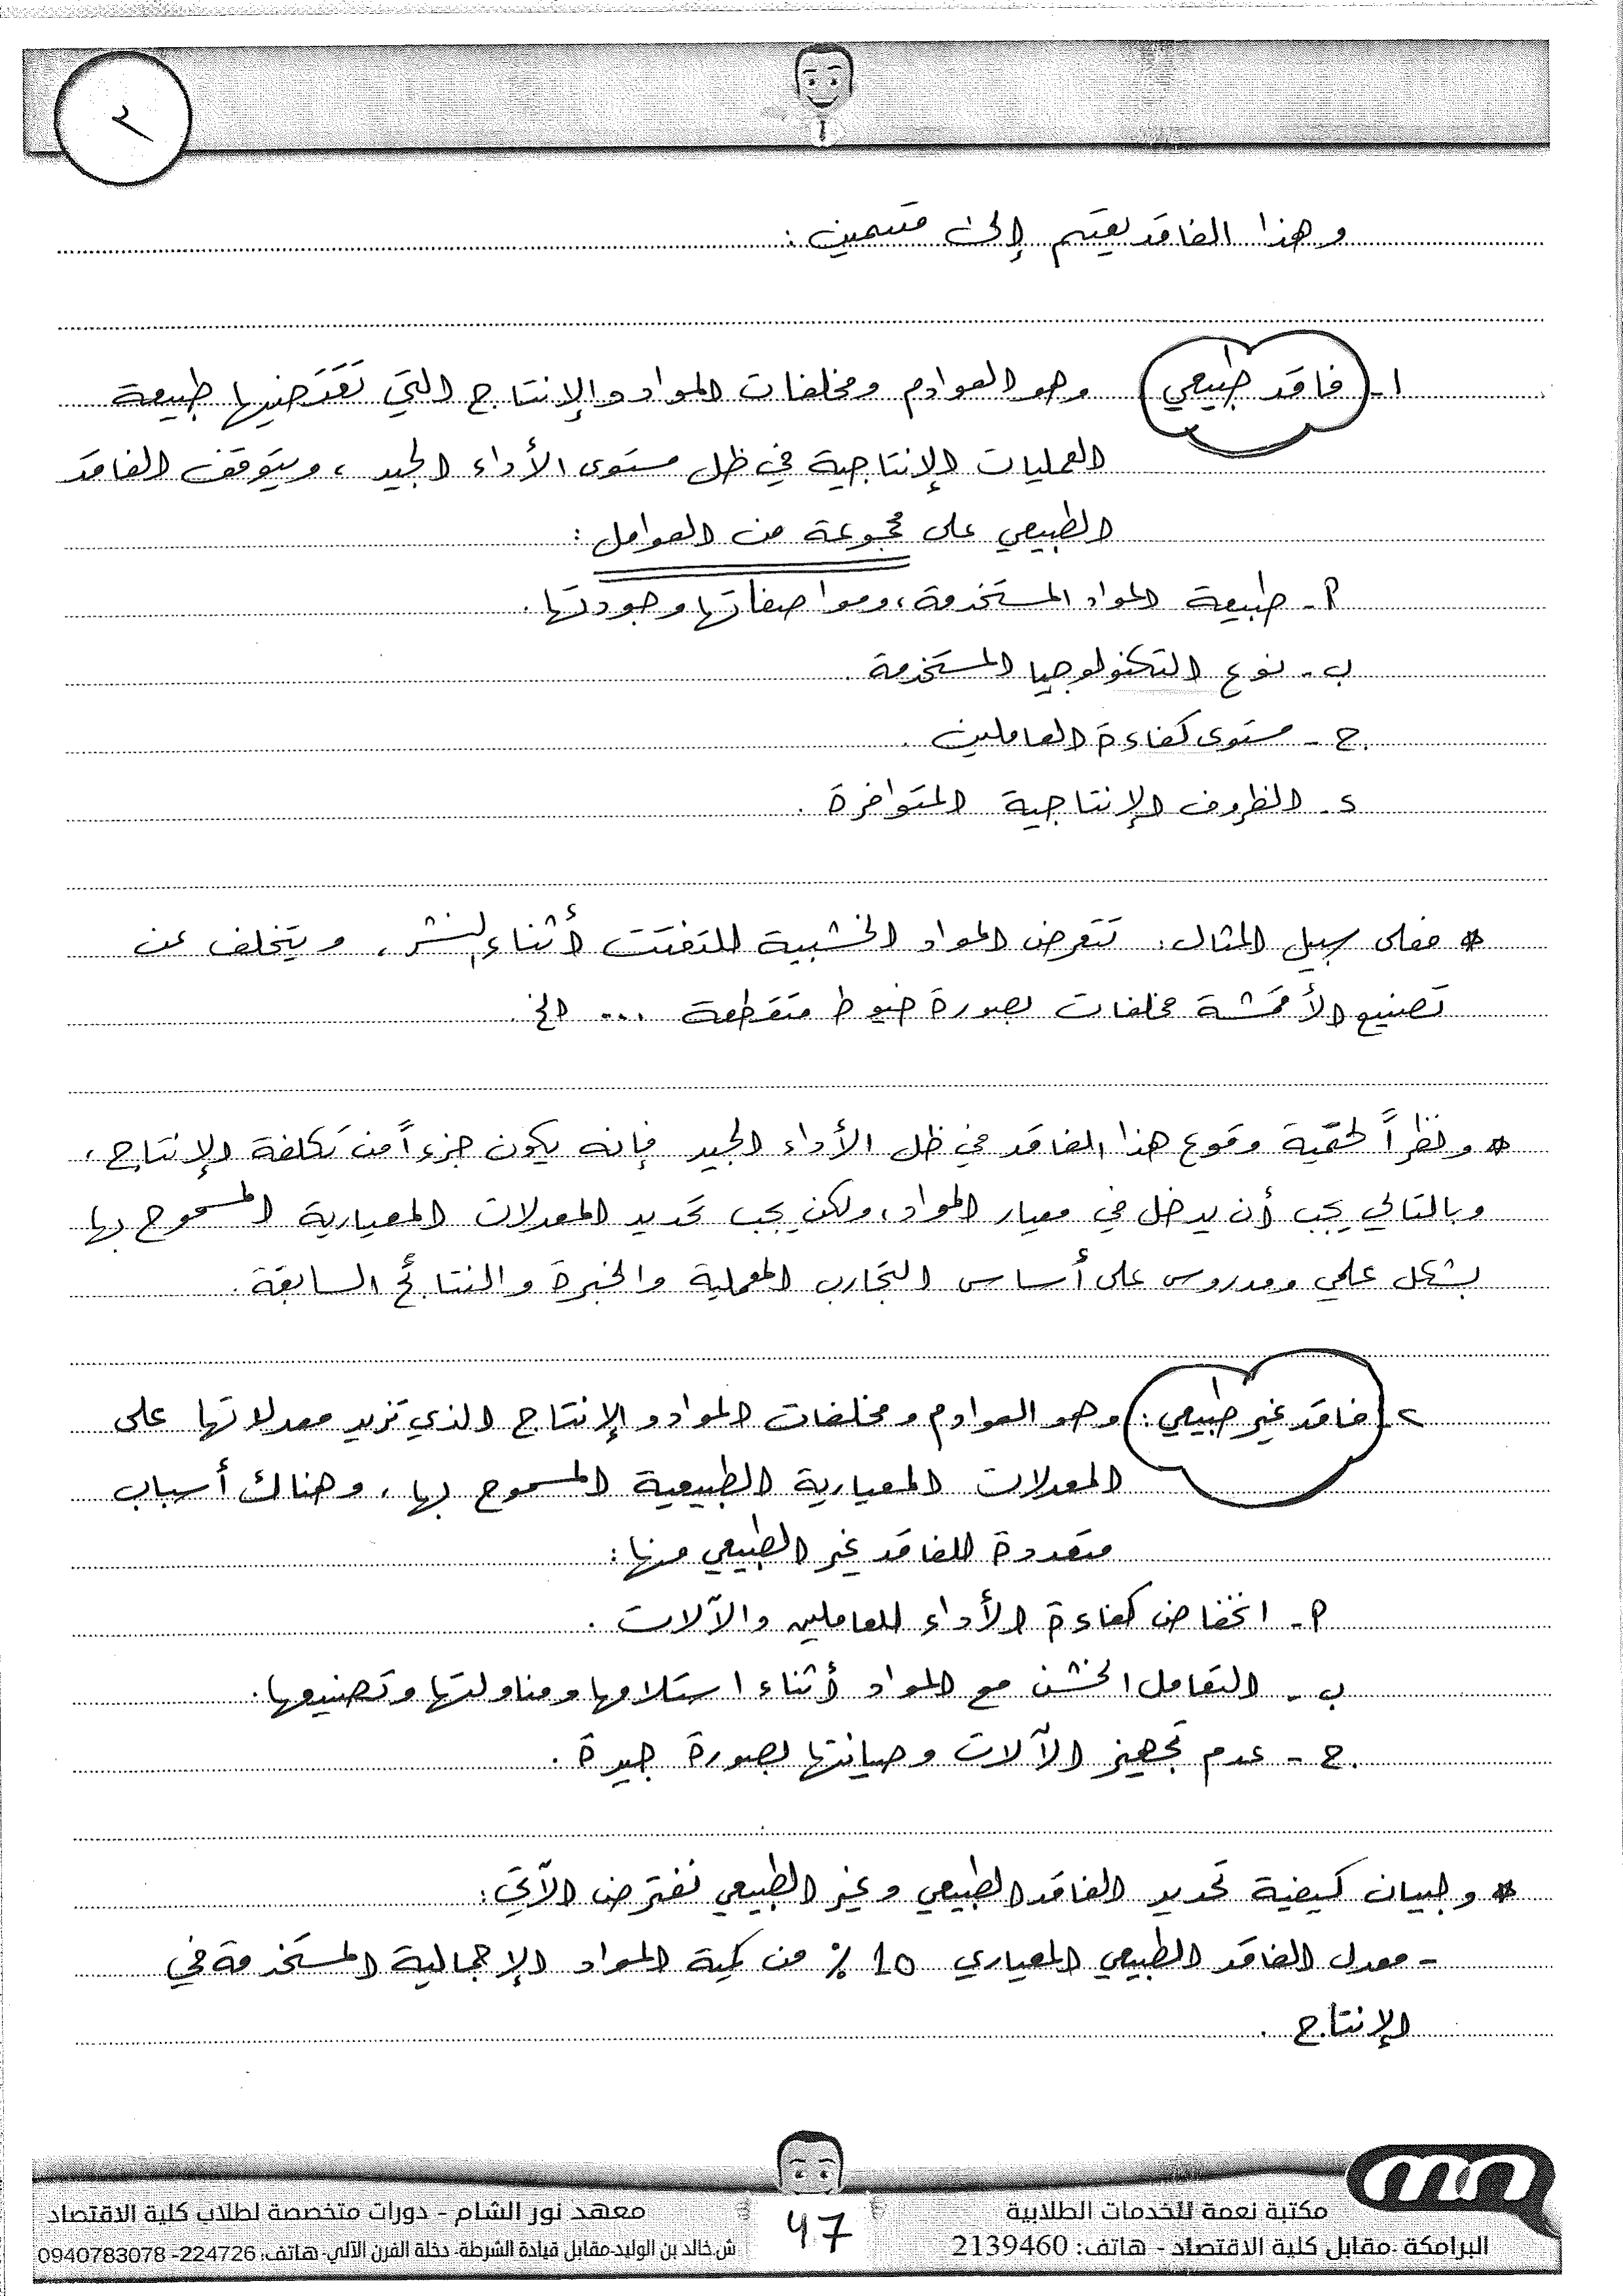 ٢
وهذا الفاقد يقسم إلى قسمين :
١- فاقد طبيعي وهو العوادم ومخلفات المواد والإنتاج التي تقتضيها طبيعة
العمليات الإنتاجية في ظل مستوى الأداء الجيد ، ويتوقف الفاقد
الطبيعي على مجموعة من العوامل :
أ- طبيعة المواد المستخدمة، ومواصفاتها وجودتها .
ب- نوع التكنولوجيا المستخدمة .
ج- مستوى كفاءة العاملين .
د- الظروف الإنتاجية المتوافرة .
* فعلى سبيل المثال: تتعرض المواد الخشبية للتفتت أثناء النشر ، ويتخلف عن
تصنيع الأقمشة مخلفات بصورة خيوط متقطعة ... الخ .
* ونظراً لحتمية وقوع هذا الفاقد في ظل الأداء الجيد فإنه يكون جزءاً من تكلفة الإنتاج ،
وبالتالي يجب أن يدخل في معيار المواد، ولكن يجب تحديد المعدلات المعيارية المسموح بها
بشكل علمي ومدروس على أساس التجارب المعملية والخبرة والنتائج السابقة .
٢- فاقد غير طبيعي : وهو العوادم ومخلفات المواد والإنتاج الذي تزيد معدلاتها على
المعدلات المعيارية الطبيعية المسموح بها ، وهناك أسباب
متعددة للفاقد غير الطبيعي منها :
أ- انخفاض كفاءة الأداء للعاملين والآلات .
ب- التعامل الخشن مع المواد أثناء استلامها ومناولتها وتصنيعها .
ج- عدم تجهيز الآلات وصيانتها بصورة جيدة .
* ولبيان كيفية تحديد الفاقد الطبيعي وغير الطبيعي نفترض الآتي :
- معدل الفاقد الطبيعي المعياري 10 % من كمية المواد الإجمالية المستخدمة في
الإنتاج .
مكتبة نعمة للخدمات الطلابية
البرامكة -مقابل كلية الاقتصاد - هاتف: 2139460
47
معهد نور الشام - دورات متخصصة لطلاب كلية الاقتصاد
ش.خالد بن الوليد-مقابل قيادة الشرطة- دخلة الفرن الآلي- هاتف: 224726- 0940783078